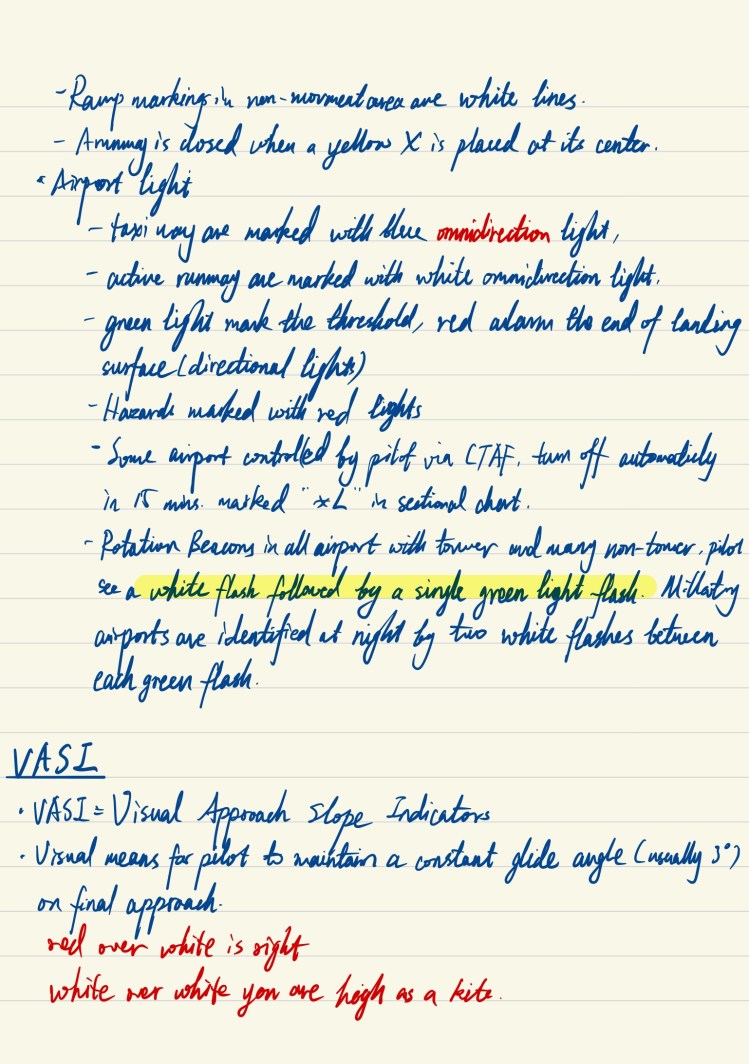 - Ramp markings in non-movment area are white lines.
- A runway is closed when a yellow X is placed at its center.
• Airport light
- taxi way are marked with blue omnidirection light,
- active runway are marked with white omnidirection light.
- green light mark the threshold, red alarm the end of landing
surface (directional lights)
- Hazards marked with red lights
- Some airport controlled by pilot via CTAF, turn off automaticly
in 15 mins. marked "*L" in sectional chart.
- Rotation Beacons in all airport with tower and many non-tower, pilot
see a white flash followed by a single green light flash. Military
airports are identified at night by two white flashes between
each green flash.
VASI
• VASI = Visual Approach Slope Indicators
• Visual means for pilot to maintain a constant glide angle (usually 3°)
on final approach.
red over white is right
white over white you are high as a kite.